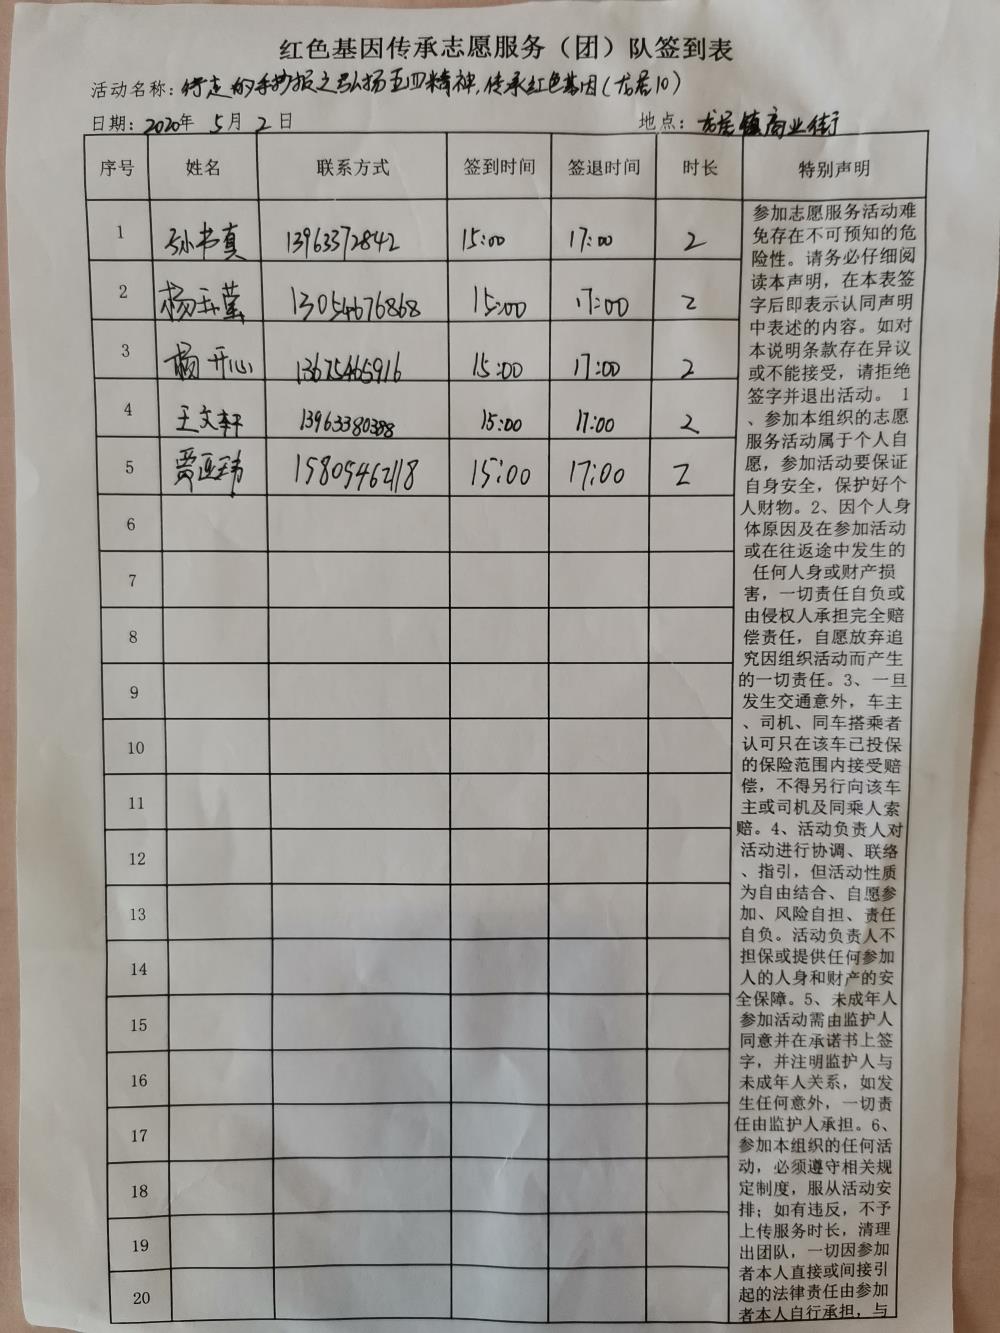 红色基因传承志愿服务（团）队签到表
活动名称：行走的手抄报之弘扬五四精神，传承红色基因（龙居10）
日期：2020年 5月 2日 地点：龙居镇商业街
序号 姓名 联系方式 签到时间 签退时间 时长 特别声明
1 孙书真 13963372842 15:00 17:00 2
2 杨玉莹 13054676868 15:00 17:00 2
3 杨开心 13675465916 15:00 17:00 2
4 王文轩 13963380388 15:00 17:00 2
5 贾亚玮 15805462118 15:00 17:00 2
6
7
8
9
10
11
12
13
14
15
16
17
18
19
20
参加志愿服务活动难
免存在不可预知的危
险性。请务必仔细阅
读本声明，在本表签
字后即表示认同声明
中表述的内容。如对
本说明条款存在异议
或不能接受，请拒绝
签字并退出活动。 1
、参加本组织的志愿
服务活动属于个人自
愿，参加活动要保证
自身安全，保护好个
人财物。2、因个人身
体原因及在参加活动
或在往返途中发生的
任何人身或财产损
害，一切责任自负或
由侵权人承担完全赔
偿责任，自愿放弃追
究因组织活动而产生
的一切责任。3、一旦
发生交通意外，车主
、司机、同车搭乘者
认可只在该车已投保
的保险范围内接受赔
偿，不得另行向该车
主或司机及同乘人索
赔。4、活动负责人对
活动进行协调、联络
、指引，但活动性质
为自由结合、自愿参
加、风险自担、责任
自负。活动负责人不
担保或提供任何参加
人的人身和财产的安
全保障。5、未成年人
参加活动需由监护人
同意并在承诺书上签
字，并注明监护人与
未成年人关系，如发
生任何意外，一切责
任由监护人承担。6、
参加本组织的任何活
动，必须遵守相关规
定制度，服从活动安
排；如有违反，不予
上传服务时长，清理
出团队，一切因参加
者本人直接或间接引
起的法律责任由参加
者本人自行承担，与